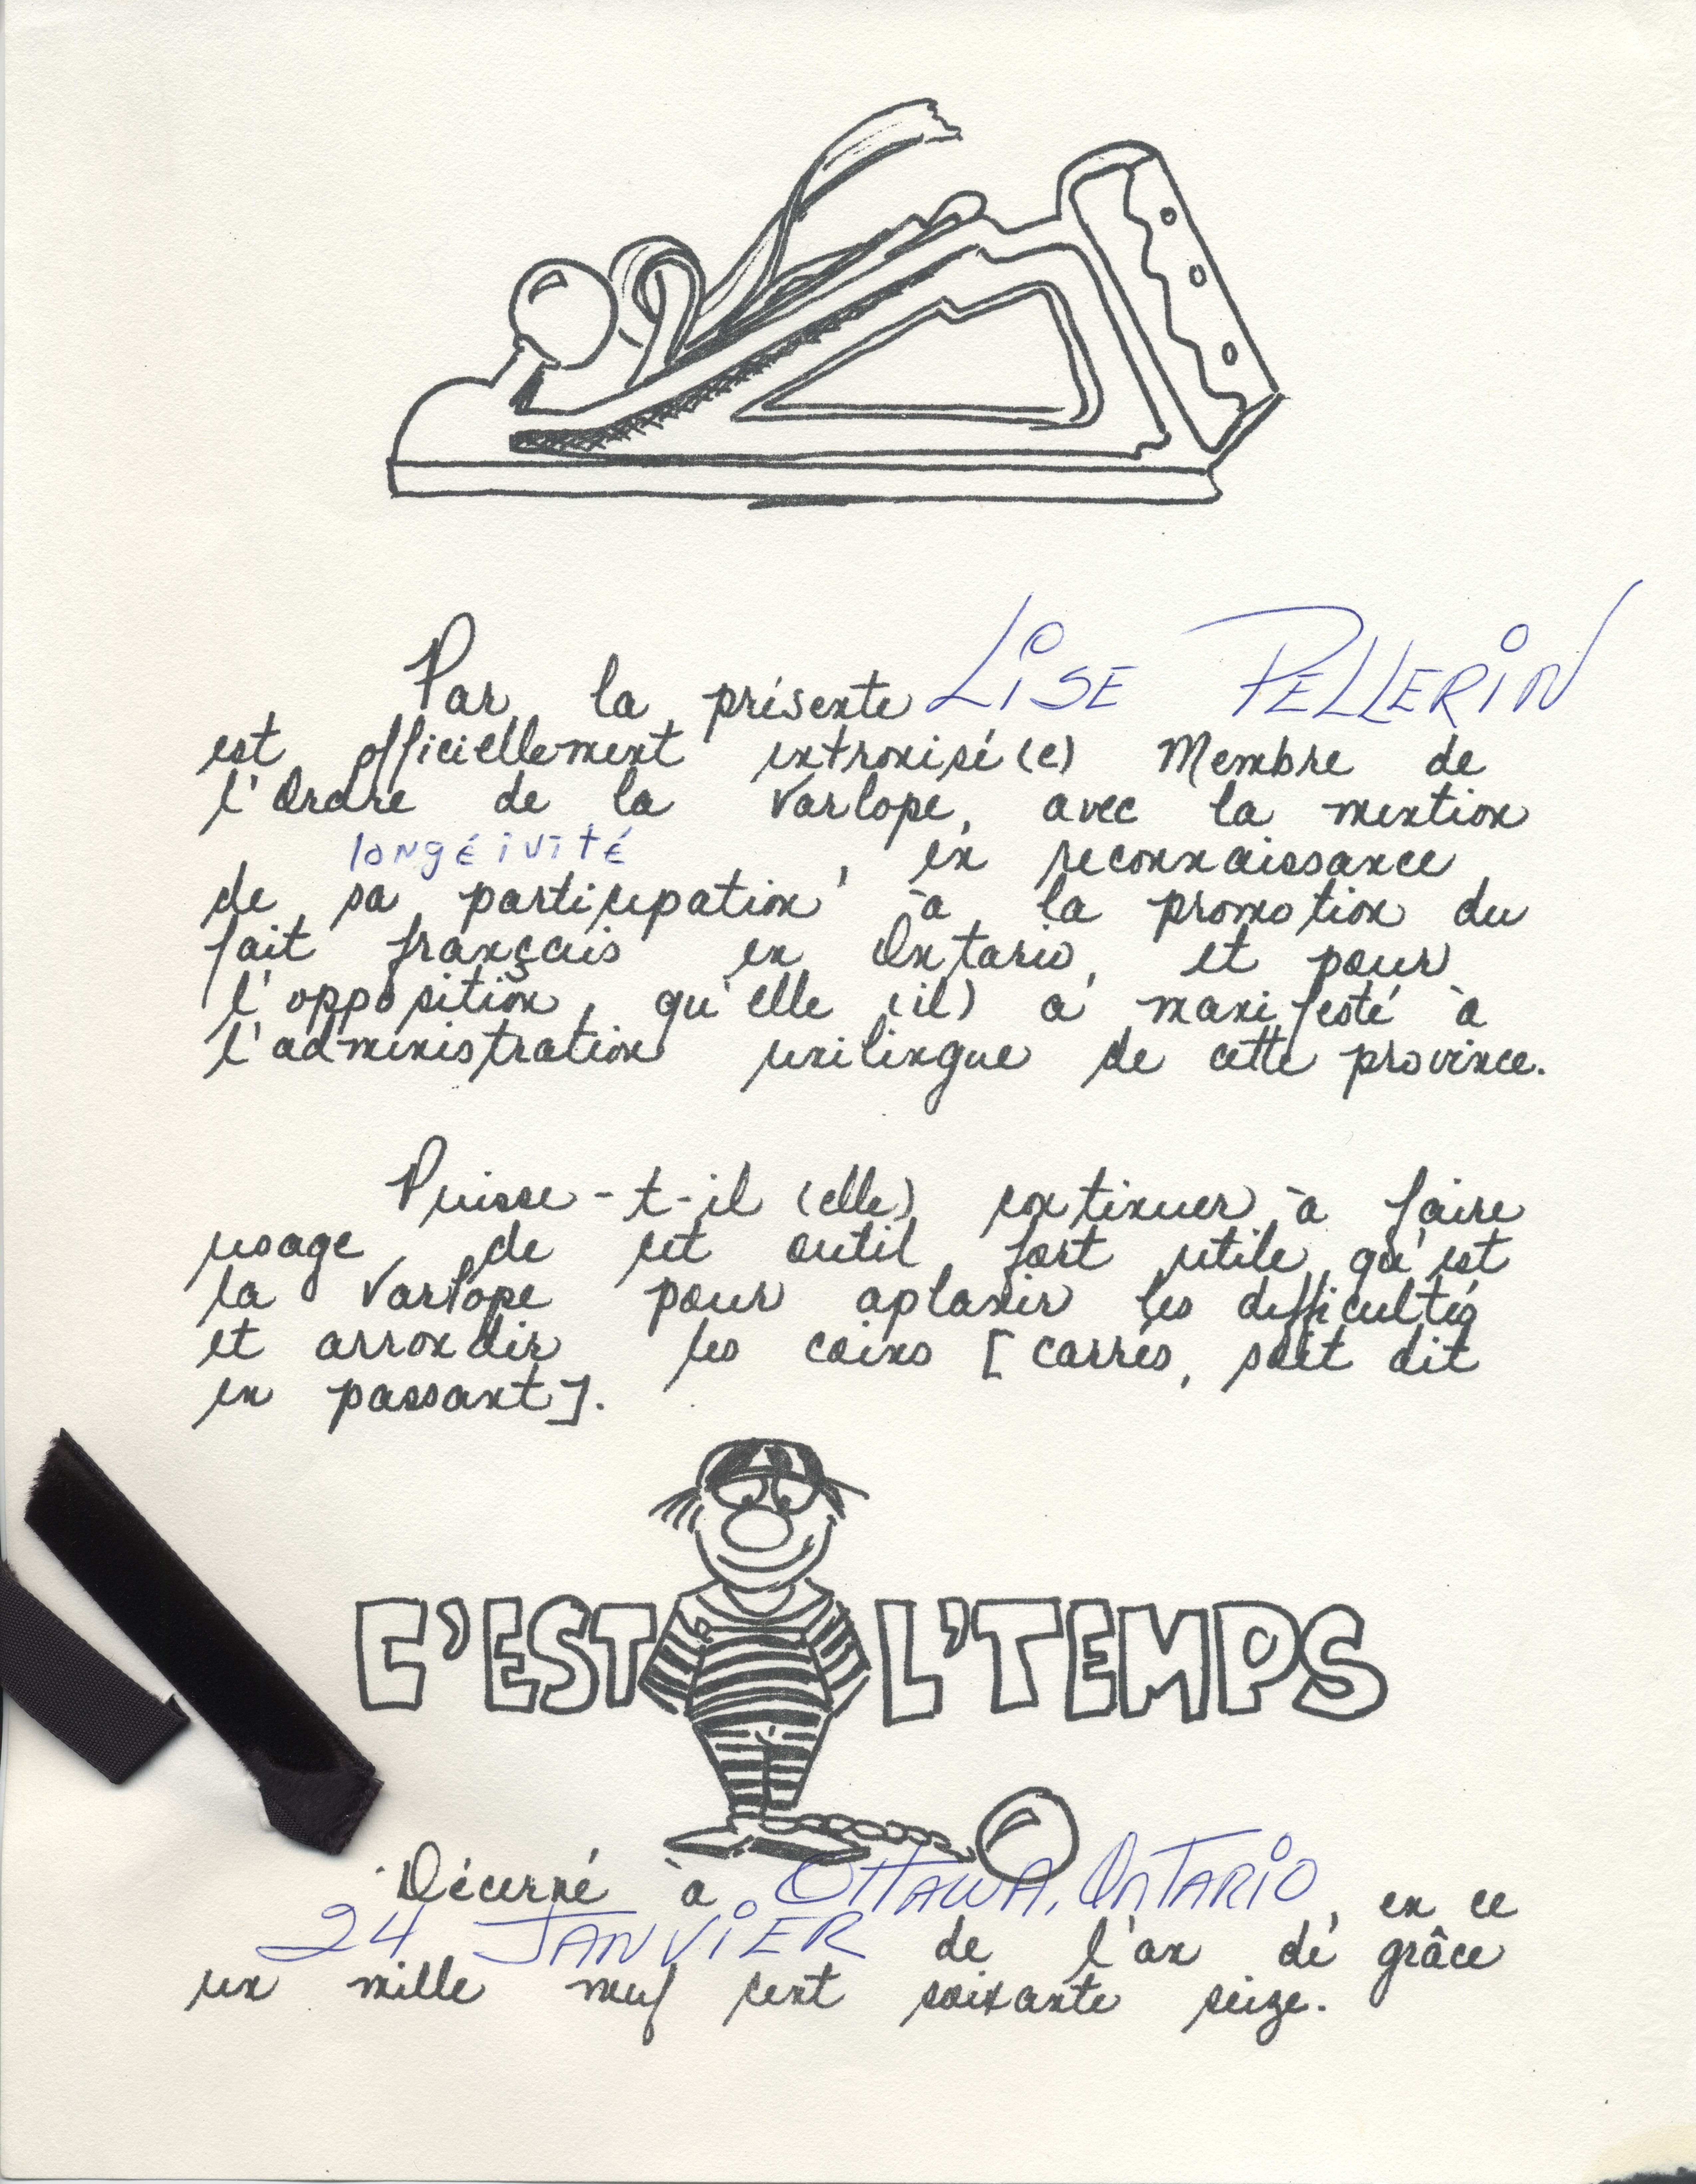 Par la présente LISE PELLERIN
est officiellement intronisé(e) Membre de
l'Ordre de la Varlope, avec la mention
longéivité, en reconnaissance
de sa participation à la promotion du
fait français en Ontario, et pour
l'opposition qu'elle (il) a manifesté à
l'administration unilingue de cette province.
Puisse-t-il (elle) continuer à faire
usage de cet outil fort utile qu'est
la Varlope pour aplanir les difficultés
et arrondir les coins [carrés, soit dit
en passant].
C'EST L'TEMPS
Décerné à OTTAWA, ONTARIO, en ce
24 JANVIER de l'an de grâce
un mille neuf cent soixante seize.